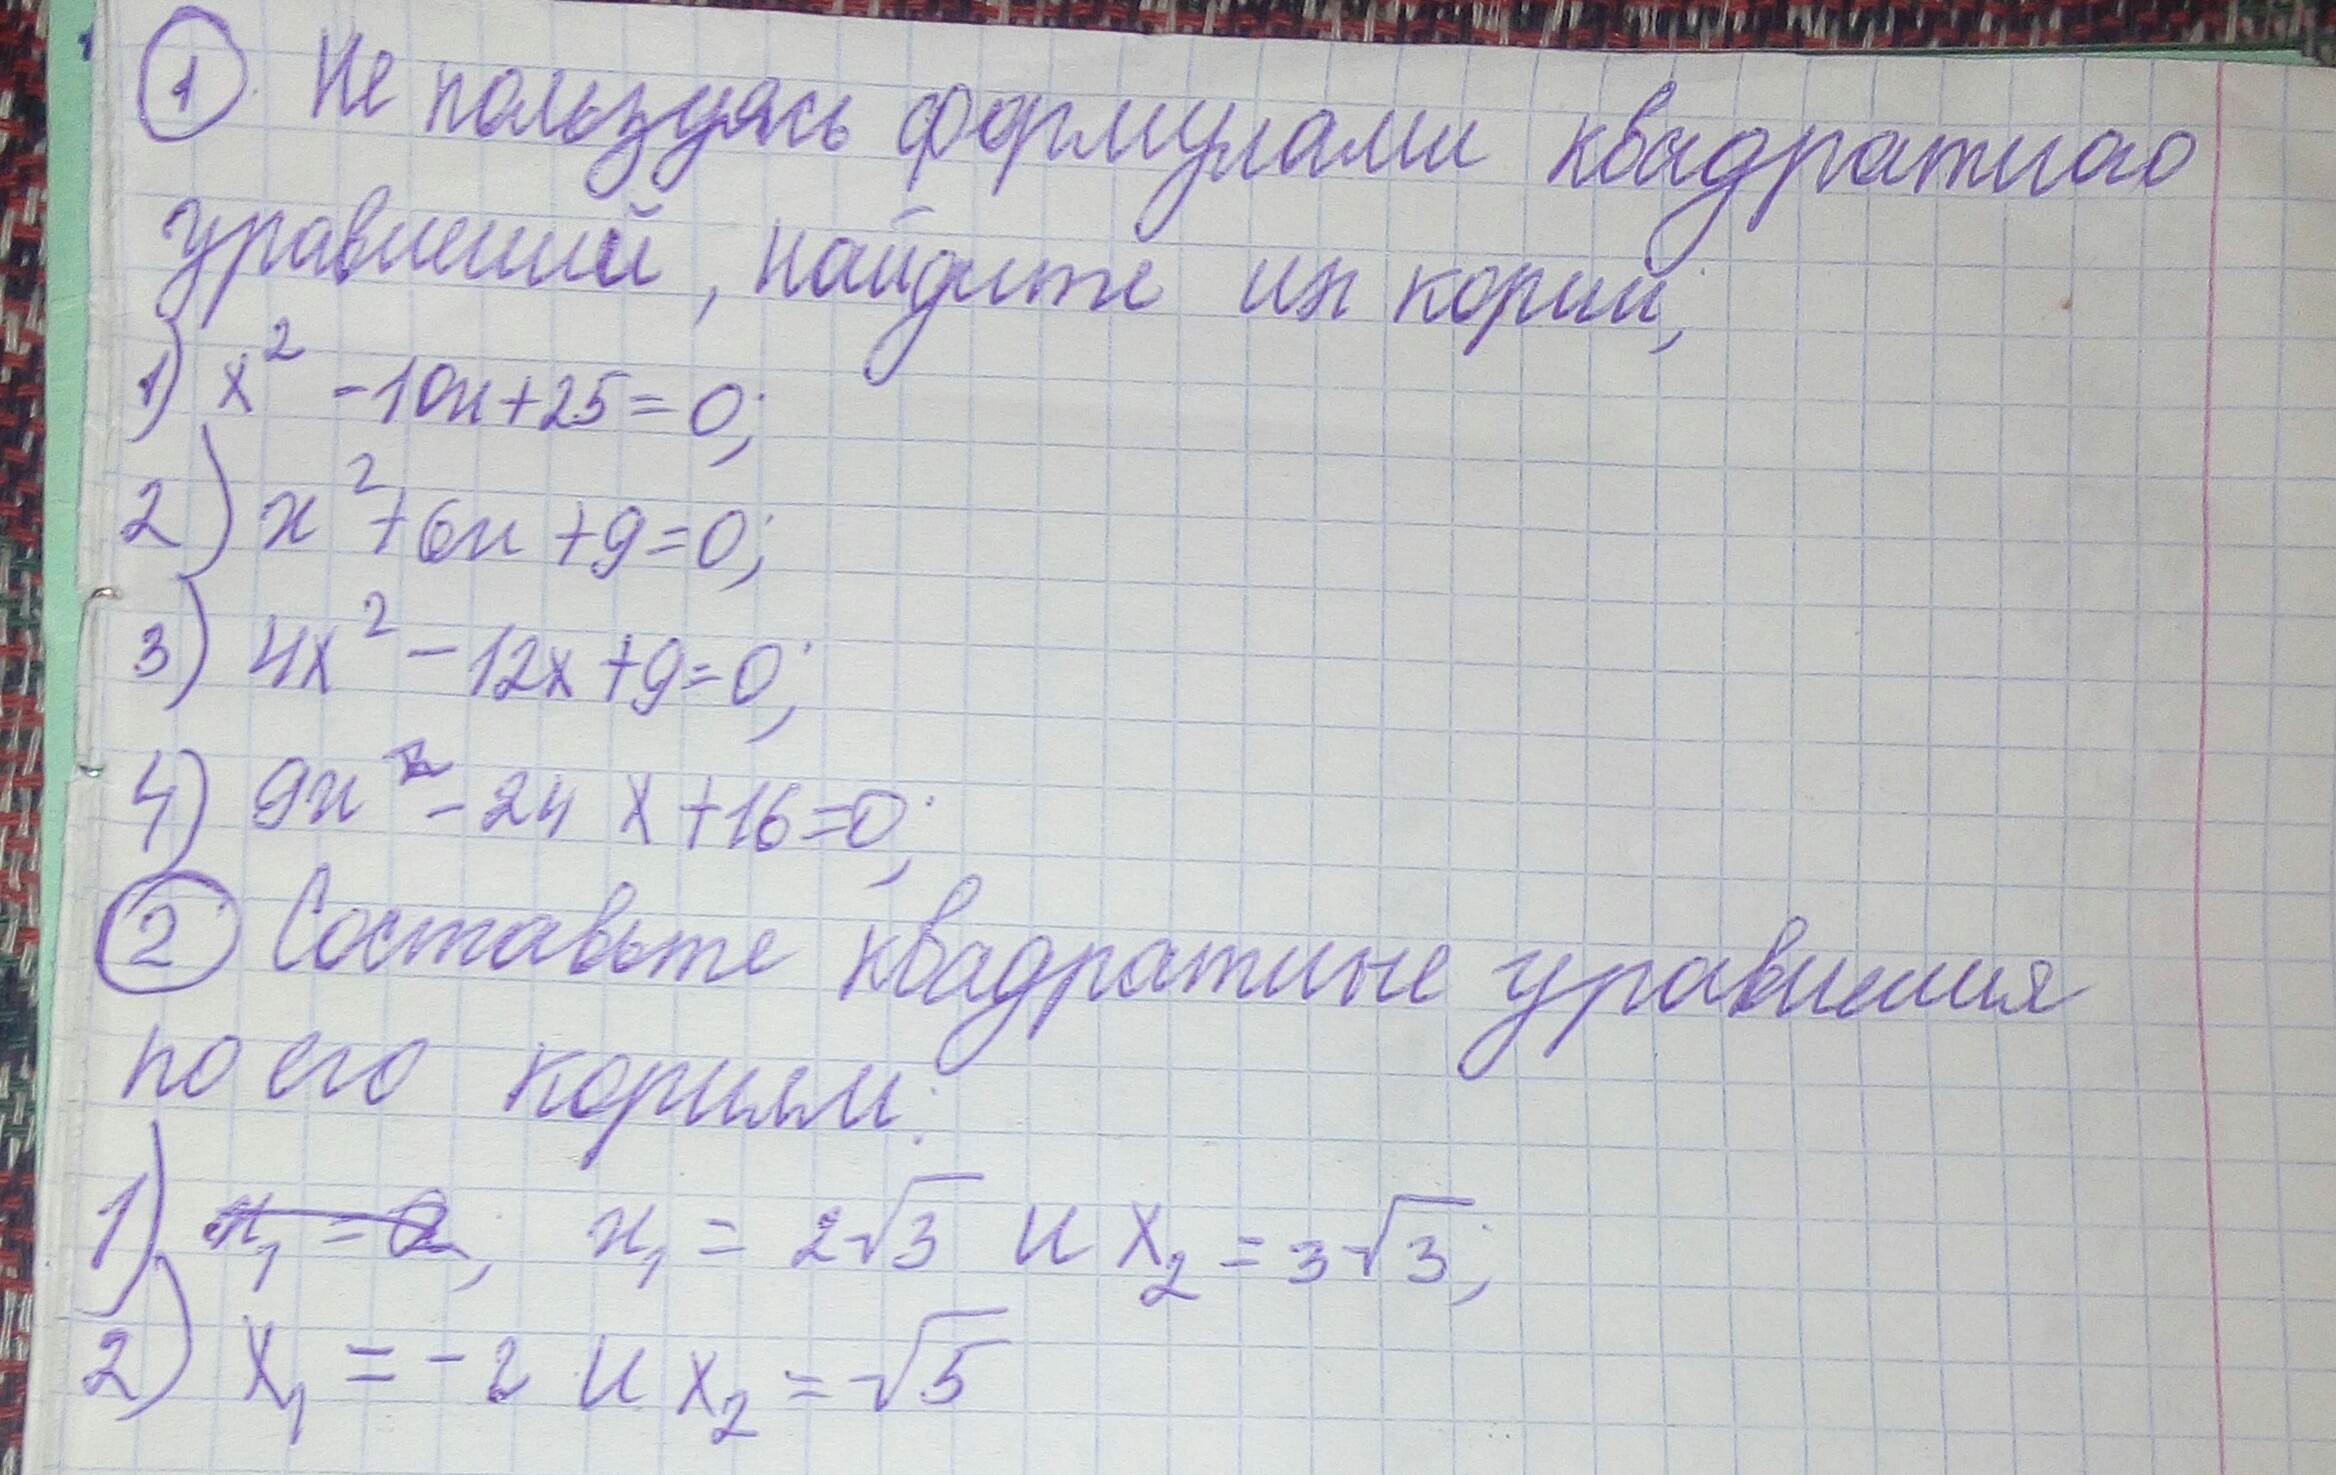 1 Не пользуясь формулами квадратного
уравнений, найдите их корни;
1) x² -10x+25=0;
2) x²+6x+9=0;
3) 4x²-12x+9=0;
4) 9x²-24x+16=0;
2 Составьте квадратные уравнения
по его корням:
1) x₁=2, x₁ = 2√3 и x₂ = 3√3;
2) x₁ = -2 и x₂ = √5